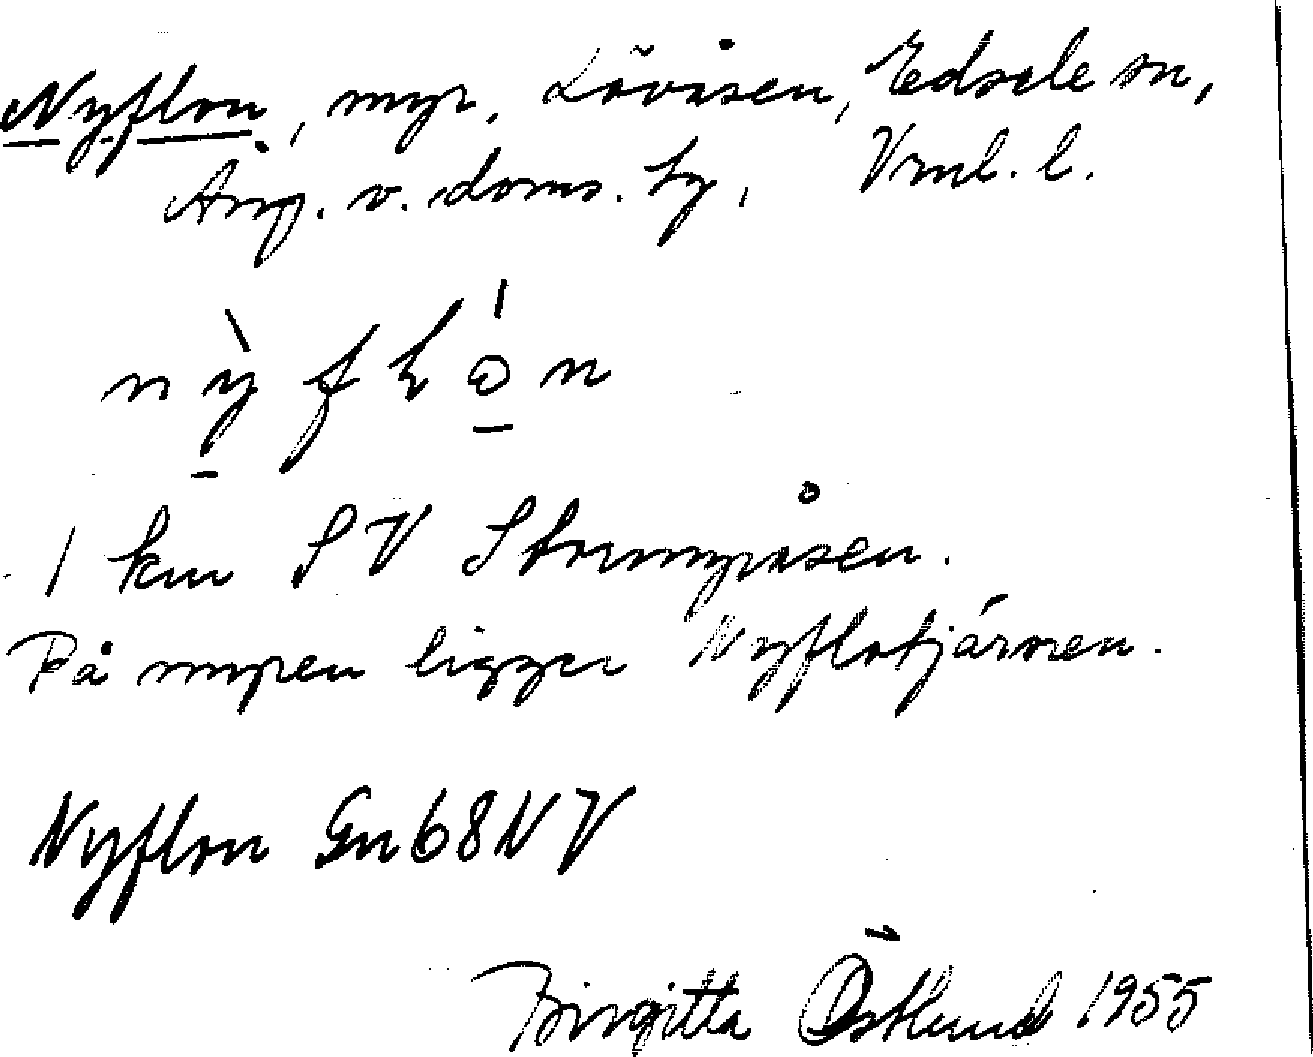 Nyflon, myr, Lövåsen, Edsele sn,
Ång. v. doms. hg, Vrnl. l.
1 km SV Stormyråsen.
På myren ligger Nyflotjärnen.
Nyflon Gn68NV
Birgitta Östlund 1955